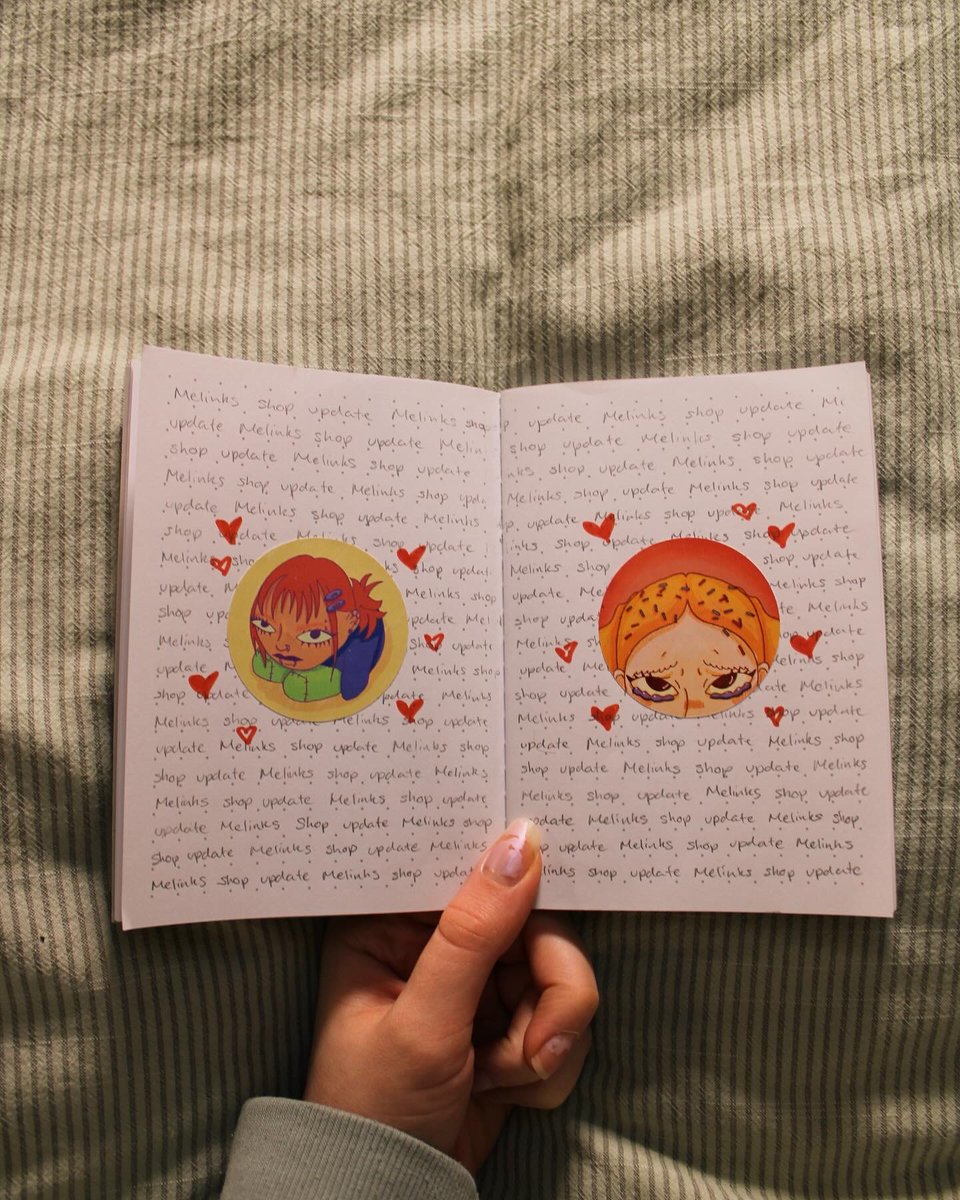 Melinks shop update Melinks shop
update Melinks shop update Melin
shop update Melinks shop update
Melinks shop update Melinks shop upda
update Melinks shop update Melinks
shop update
Melinks shop shop updat
update update Mel
shop upd Melinks shop
Melinks shop update
update Melinks shop
shop update update Melinks
Melinks shop update Melinks shop update
update Melinks shop update Melinks shop
shop update Melinks shop update Melinks
Melinks shop update Melinks shop update
update Melinks Shop update Melinks shop
shop update Melinks shop update Melinks
Melinks shop update Melinks shop upda
p update Melinks shop update Mi
shop update Melinks shop update
nks shop update Melinks shop update
Melinks shop update Melinks shop update
p update Melinks shop update Melinks
inks shop update shop update
Melinks shop update
update Me Melinks shop
shop update update Melinks
Melinks shop update
update Me Melinks shop
shop update date Melinks
Melinks shop update Melinks shop update
update Melinks shop update Melinks shop
shop update Melinks shop update Melinks
Melinks shop update Melinks shop update
update Melinks shop update Melinks shop
p update Melinks shop update Melinks
links shop update Melinks shop update